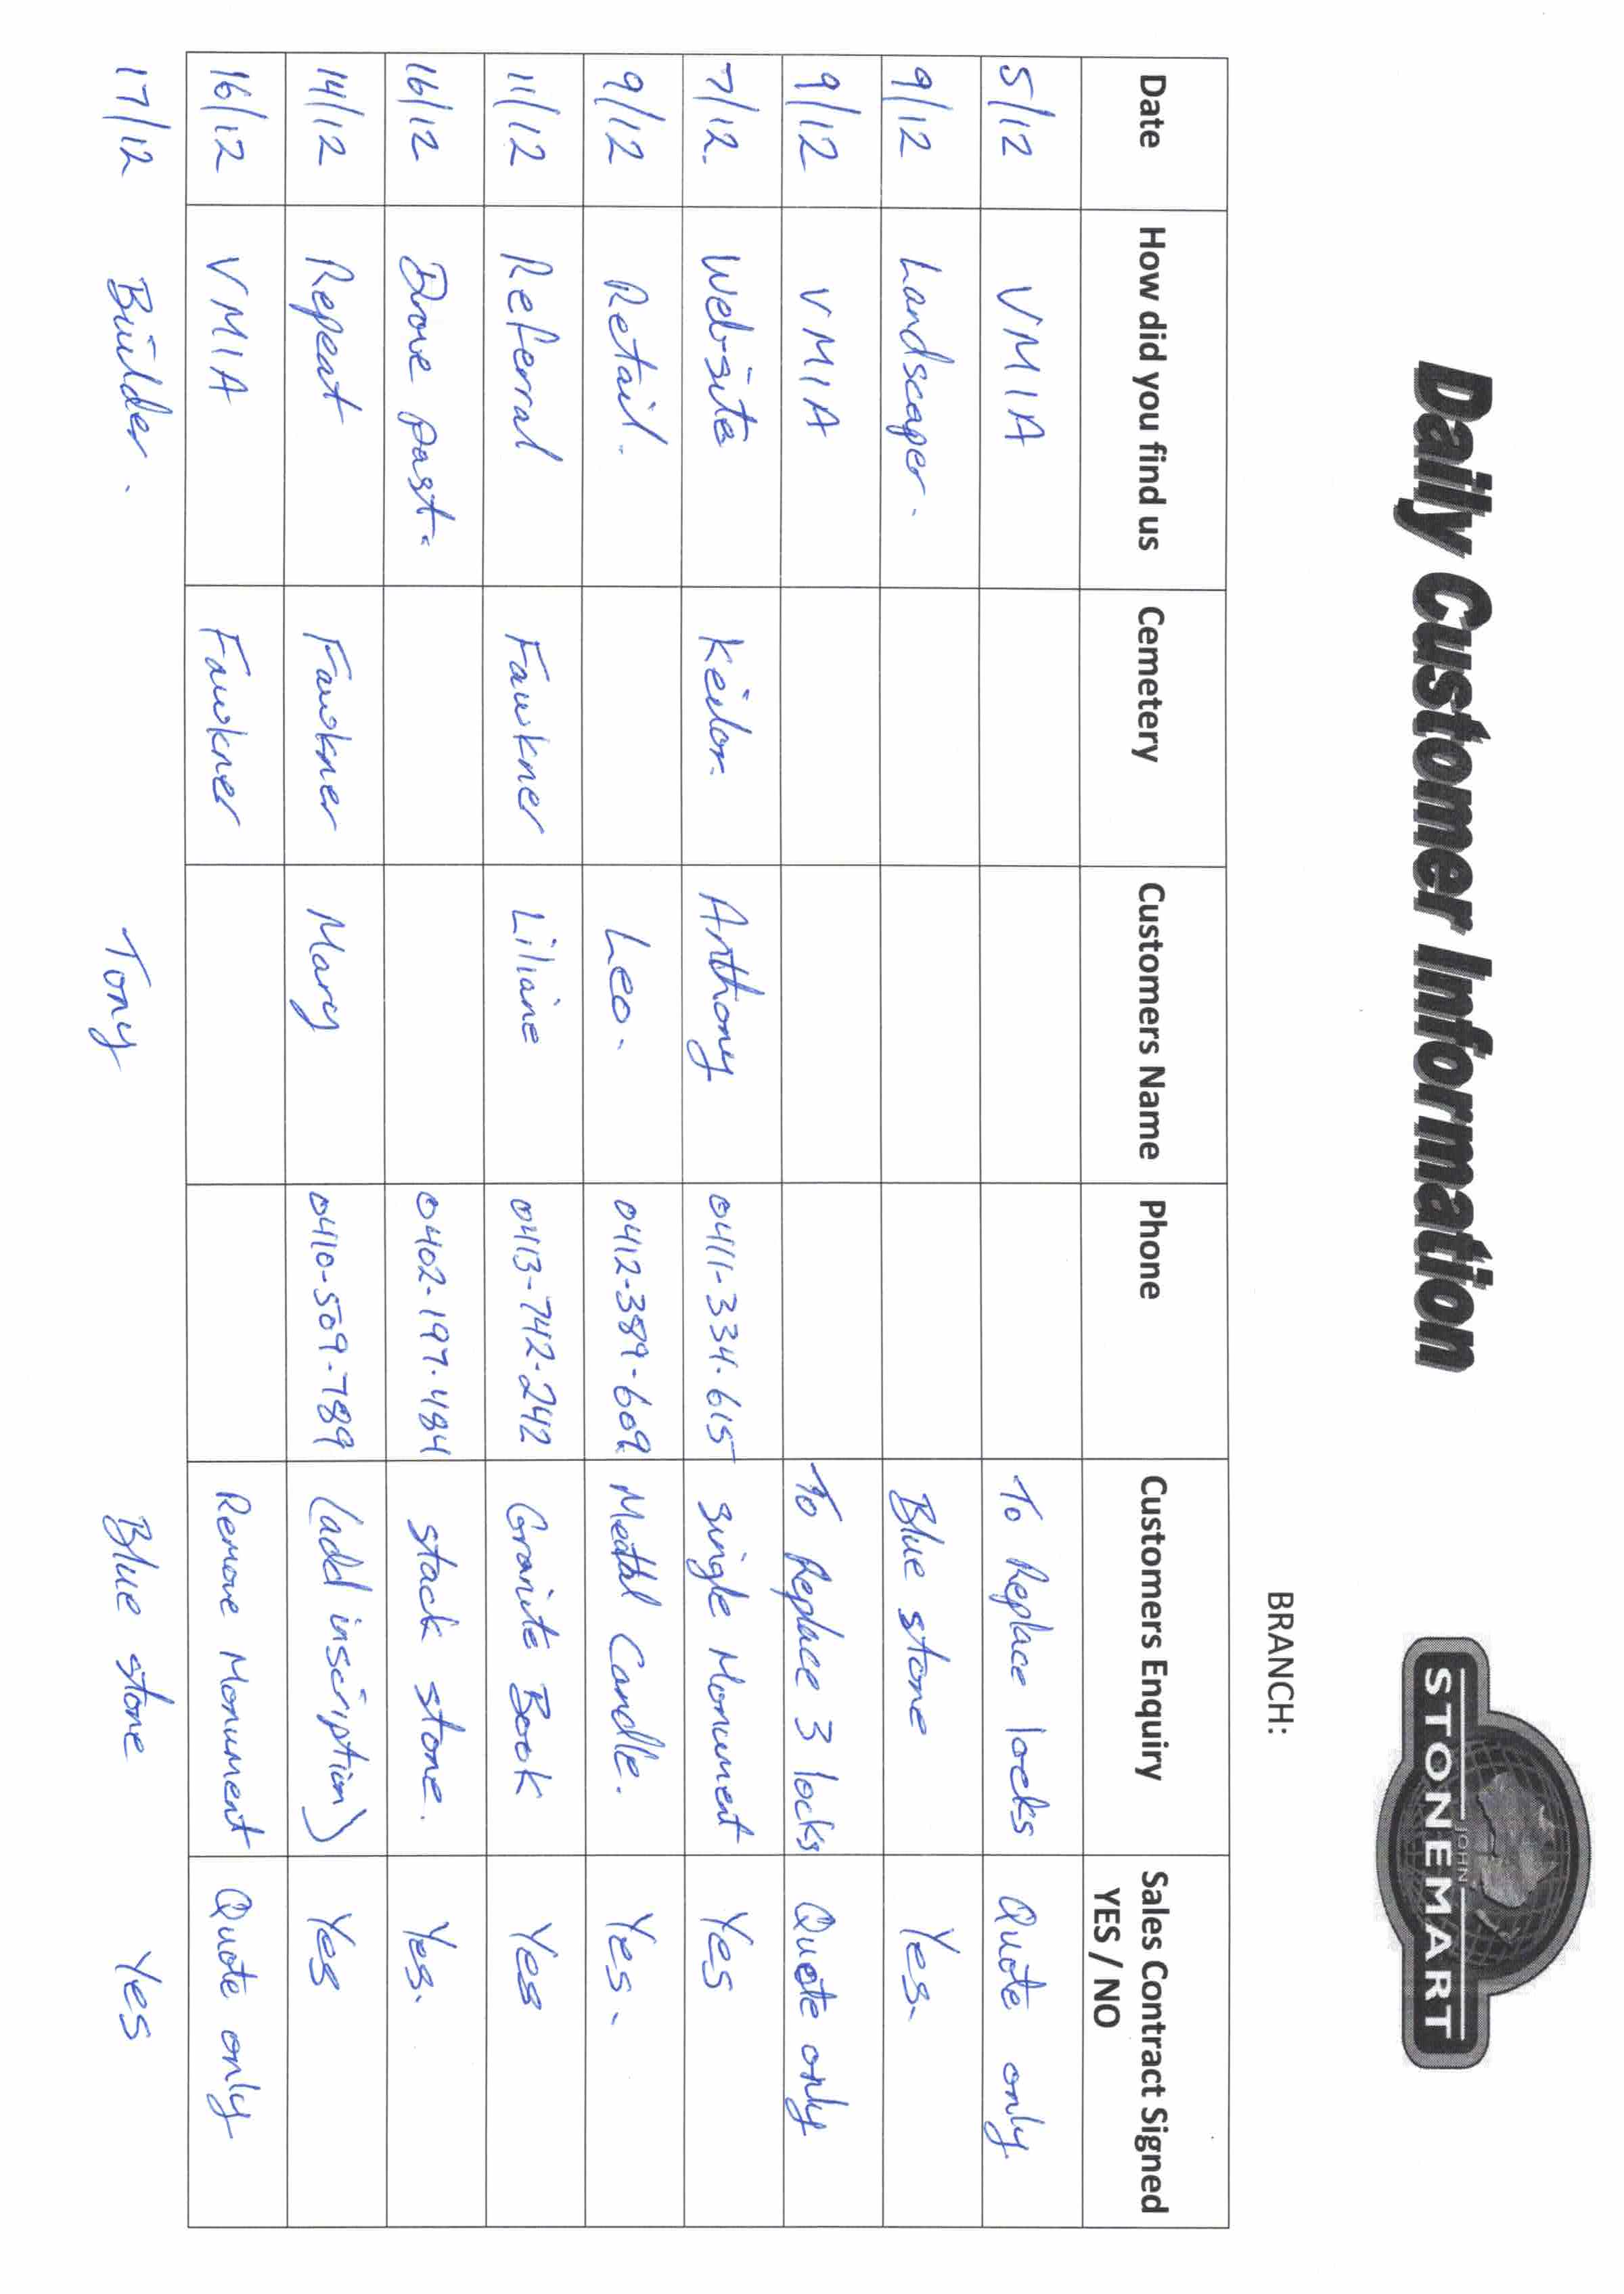 Daily Customer Information
JOHN
STONEMART
BRANCH:
Date How did you find us Cemetery Customers Name Phone Customers Enquiry Sales Contract Signed YES / NO
5/12 VMIA To Replace locks Quote only
9/12 Landscaper. Blue stone Yes.
9/12 VMIA To Replace 3 locks Quote only
7/12. Website Keilor. Anthony 0411-334-615 single Monument Yes
9/12 Retail. Leo. 0412-389-609 Meatal Candle. Yes.
11/12 Referral Fawkner Liliane 0413-742-242 Granite Book Yes
16/12 Drove past. 0402-197-484 stack stone. Yes.
14/12 Repeat Fawkner Mary 0410-509-789 (add inscription) Yes
16/12 VMIA Fawkner Remove Monument Quote only
17/12 Builder. Tony Blue stone Yes